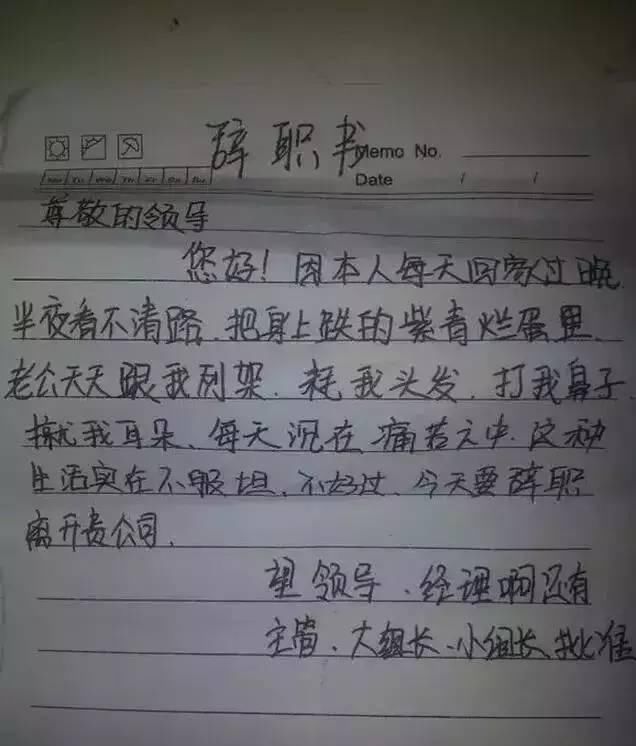 辞职书
Memo No.
Date / /
尊敬的领导
您好！因本人每天回家过晚
半夜看不清路、把身上跌的紫青烂蛋里、
老公天天跟我列架、耗我头发、打我鼻子、
揪我耳朵、每天沉在痛若之中、这种
生活实在不服坦、不好过、今天要辞职
离开贵公司、
望领导、经理啊还有
主管、大组长、小组长、批准